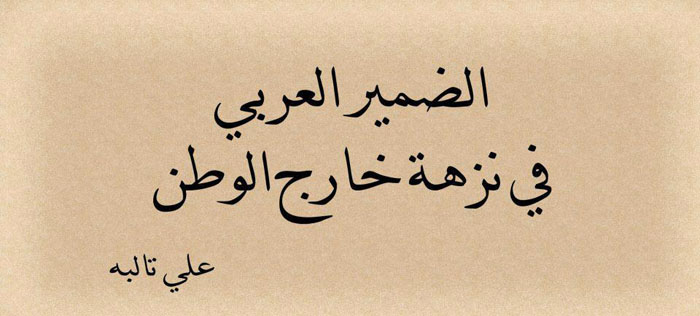 الضمير العربي
في نزهة خارج الوطن
علي تالبه